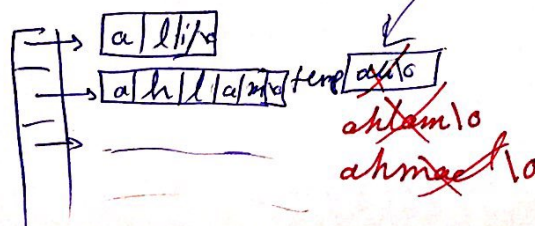 a l i \o
a h l a m \o temp ali\o
ahlam\o
ahmad\o